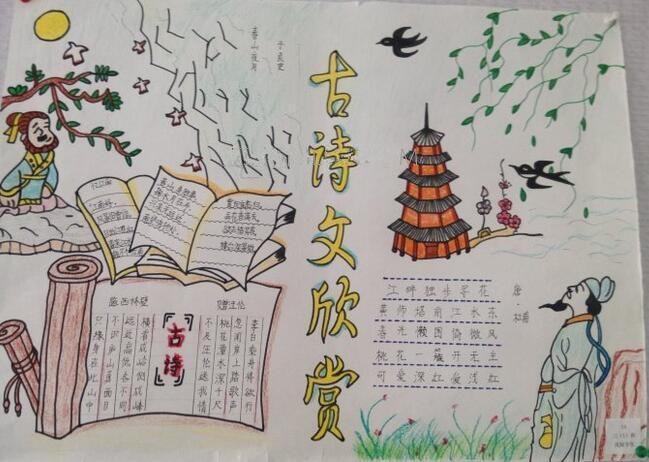 古诗文欣赏
春山夜月
于良史
忆江南
江南好
春山多胜事
赏玩夜忘归
掬水月在手
弄花香满衣
题西林壁
横看成岭侧成峰
远近高低各不同
不识庐山真面目
只缘身在此山中
古诗
赠汪伦
李白乘舟将欲行
忽闻岸上踏歌声
桃花潭水深千尺
不及汪伦送我情
江畔独步寻花
唐·杜甫
黄师塔前江水东
春光懒困倚微风
桃花一簇开无主
可爱深红爱浅红